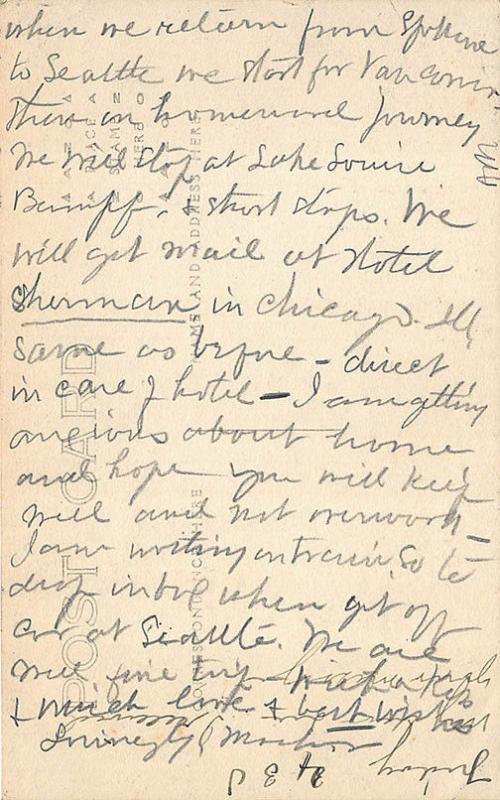 when we return from Spokane
to Seattle we start for Vancouver
then on homeward journey
We will stop at Lake Louise
Bampff, & short stops. We
will get mail at Hotel
Sherman in Chicago. Ill
same as before – direct
in care of hotel – I am getting
anxious about home
and hope you will keep
well and not overwork –
I am writing on train so to
drop in box when get off
car at Seattle. We are
well fine trip
& much love & best wishes
Lovingly Mother
POST CARD
CORRESPONDENCE HERE
NAME AND ADDRESS HERE
PLACE
STAMP
HERE